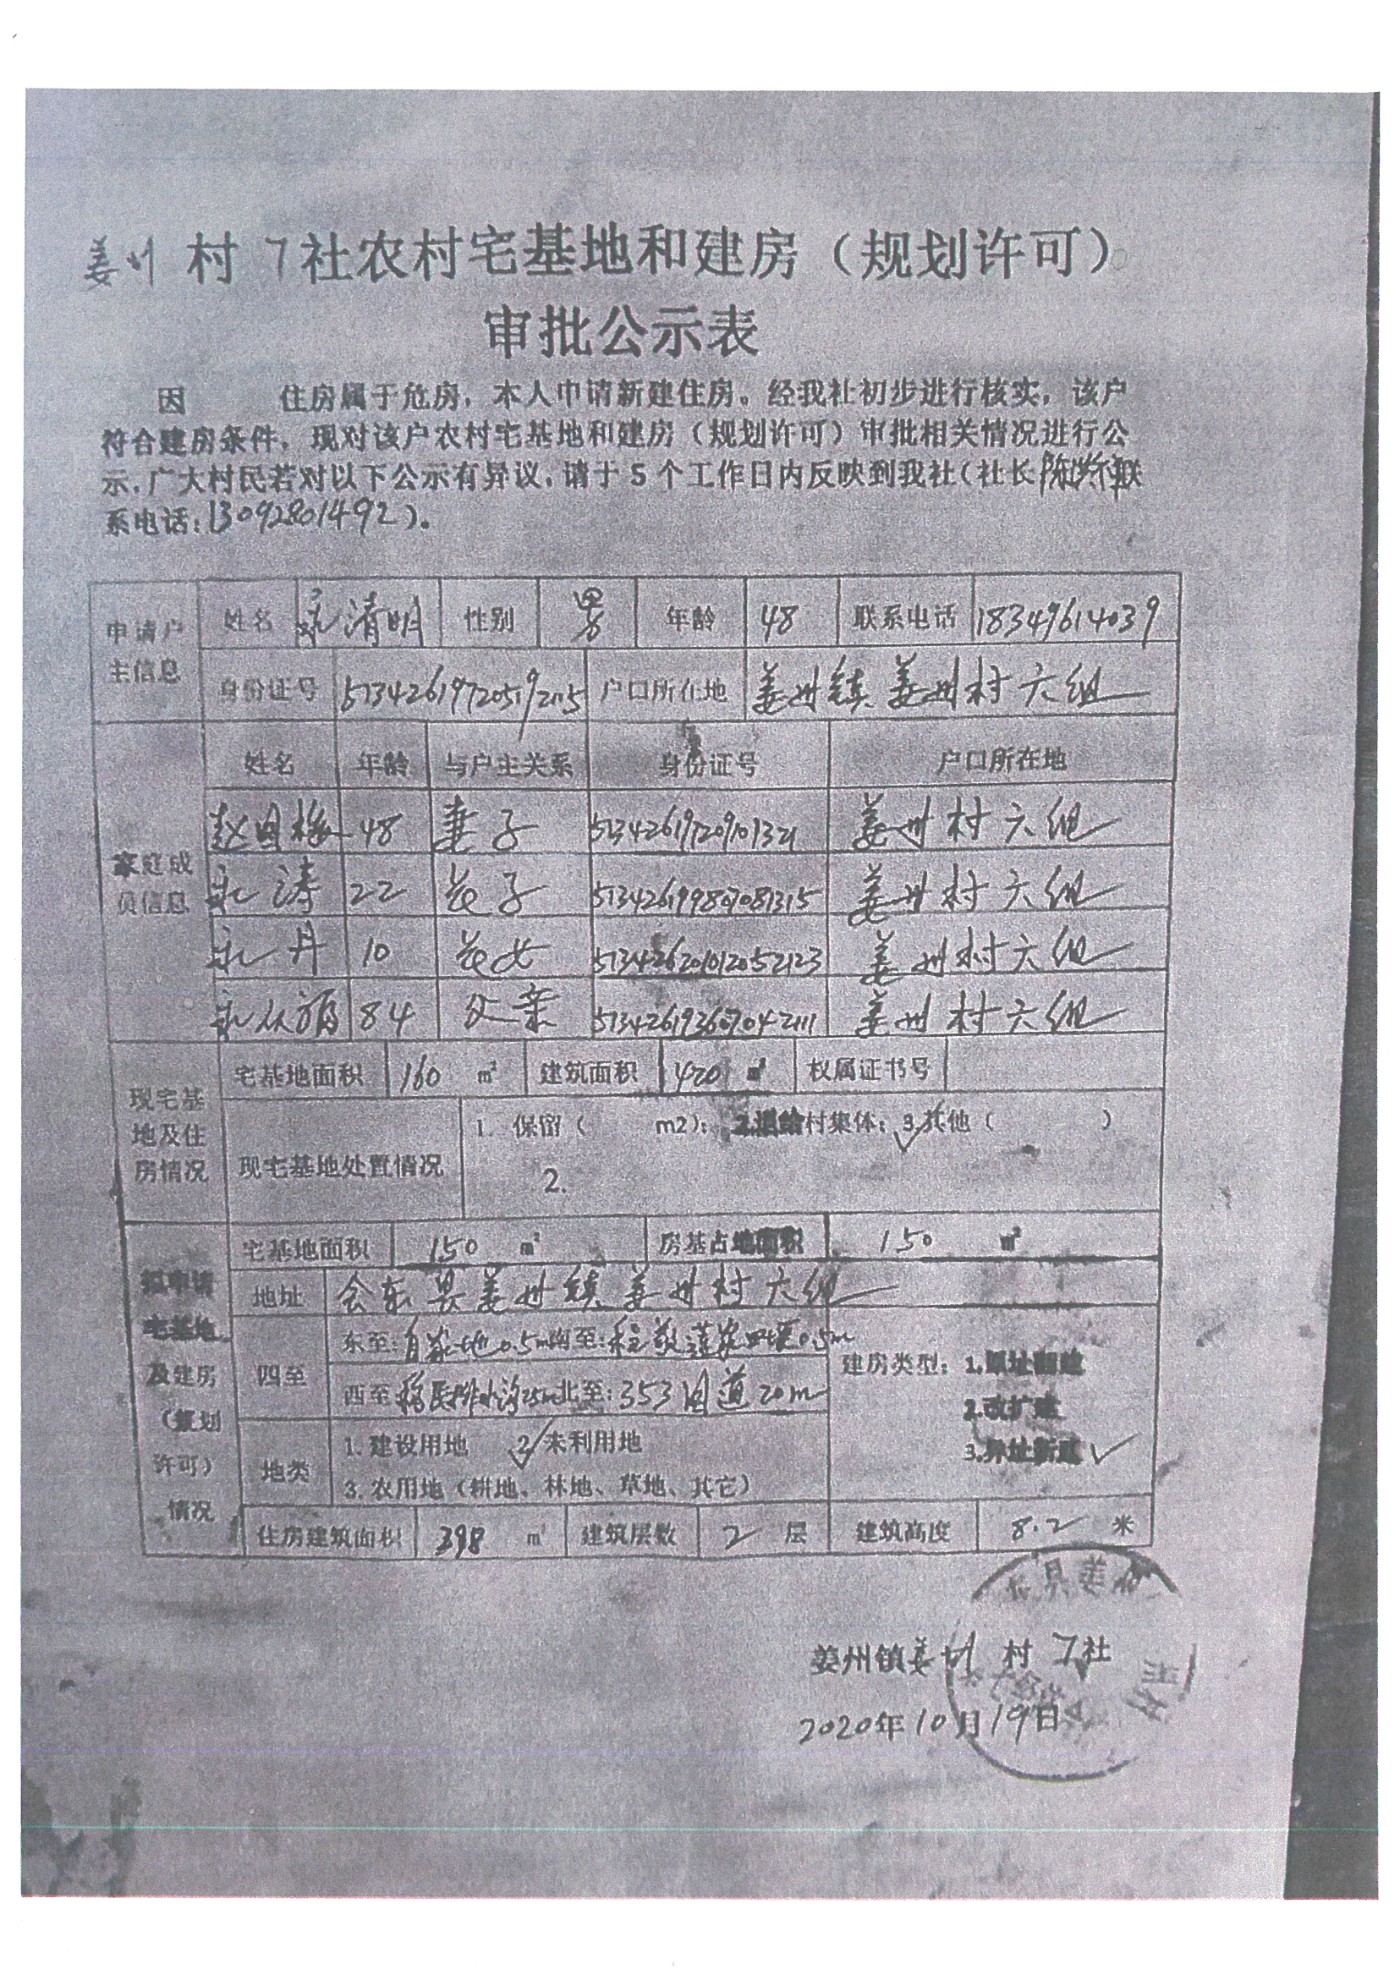 姜州 村 7 社农村宅基地和建房（规划许可）
审批公示表
因 住房属于危房，本人申请新建住房。经我社初步进行核实，该户
符合建房条件，现对该户农村宅基地和建房（规划许可）审批相关情况进行公
示，广大村民若对以下公示有异议，请于 5 个工作日内反映到我社（社长 联
系电话：13092801492）。
申请户主信息 姓名 清明 性别 男 年龄 48 联系电话 18349614039
身份证号 513426197205192115 户口所在地 姜州镇姜州村六组
家庭成员信息 姓名 年龄 与户主关系 身份证号 户口所在地
赵国梅 48 妻子 姜州村六组
涛 22 长子 513426199807081315 姜州村六组
丹 10 长女 513426201012052123 姜州村六组
84 父亲 513426193607042111 姜州村六组
现宅基地及住房情况 宅基地面积 160 m² 建筑面积 420 m² 权属证书号
现宅基地处置情况 1. 保留（ m2）；2.退给村集体；3.✓其他（ ）
2.
拟申请宅基地及建房（规划许可）情况 宅基地面积 150 m² 房基占地面积 150 m²
地址 会东县姜州镇姜州村六组
四至 东至：自家地0.5m 南至： 0.5m 建房类型：1.原址翻建
西至 北至：353国道20m 2.改扩建
地类 1. 建设用地 2.✓未利用地 3.异址新建 ✓
3. 农用地（耕地、林地、草地、其它）
住房建筑面积 398 m² 建筑层数 2 层 建筑高度 8.2 米
姜州镇姜州 村 7 社
2020年10月19日